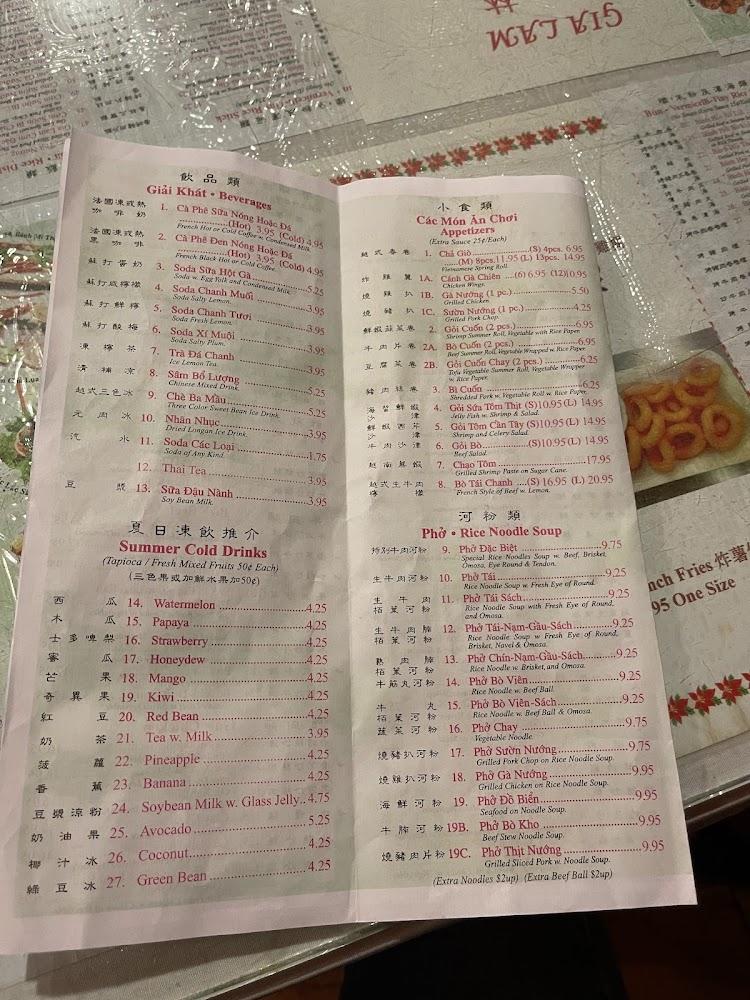 GIA LAM
飲品類
Giải Khát • Beverages
法國凍或熱咖啡奶 1. Cà Phê Sữa Nóng Hoặc Đá
(Hot) 3.95 (Cold) 4.95
French Hot or Cold Coffee w. Condensed Milk.
法國凍或熱黑咖啡 2. Cà Phê Đen Nóng Hoặc Đá
(Hot) 3.95 (Cold) 4.95
French Black Hot or Cold Coffee.
蘇打蛋奶 3. Soda Sữa Hột Gà 5.25
Soda w. Egg Yolk and Condensed Milk.
蘇打咸檸檬 4. Soda Chanh Muối 3.95
Soda Salty Lemon.
蘇打鮮檸 5. Soda Chanh Tươi 3.95
Soda Fresh Lemon.
蘇打酸梅 6. Soda Xí Muội 3.95
Soda Salty Plum.
凍檸茶 7. Trà Đá Chanh 3.95
Ice Lemon Tea.
清補凉 8. Sâm Bổ Lượng 5.25
Chinese Mixed Drink.
越式三色冰 9. Chè Ba Mầu 5.25
Three Color Sweet Bean Ice Drink.
元肉冰 10. Nhãn Nhục 3.95
Dried Longan Ice Drink.
汽水 11. Soda Các Loại 1.75
Soda of Any Kind.
12. Thai Tea 3.95
豆漿 13. Sữa Đậu Nành 3.95
Soy Bean Milk.
夏日凍飲推介
Summer Cold Drinks
(Tapioca / Fresh Mixed Fruits 50¢ Each)
(三色果或加鮮水果加50¢)
西瓜 14. Watermelon 4.25
木瓜 15. Papaya 4.25
士多啤梨 16. Strawberry 4.25
蜜瓜 17. Honeydew 4.25
芒果 18. Mango 4.25
奇異果 19. Kiwi 4.25
紅豆 20. Red Bean 4.25
奶茶 21. Tea w. Milk 3.95
菠蘿 22. Pineapple 4.25
香蕉 23. Banana 4.25
豆漿涼粉 24. Soybean Milk w. Glass Jelly 4.75
奶油果 25. Avocado 5.25
椰汁冰 26. Coconut 4.25
綠豆冰 27. Green Bean 4.25
小食類
Các Món Ăn Chơi
Appetizers
(Extra Sauce 25¢/Each)
越式春卷 1. Chả Giò (S) 4pcs. 6.95
(M) 8pcs. 11.95 (L) 13pcs. 14.95
Vietnamese Spring Roll.
炸雞翼 1A. Cánh Gà Chiên (6) 6.95 (12)10.95
Chicken Wings.
燒雞扒 1B. Gà Nướng (1 pc.) 5.50
Grilled Chicken.
燒豬扒 1C. Sườn Nướng (1 pc.) 4.25
Grilled Pork Chop
鮮蝦蔬菜卷 2. Gỏi Cuốn (2 pcs.) 6.95
Shrimp Summer Roll, Vegetable with Rice Paper.
牛肉片卷 2A. Bò Cuốn (2 pcs.) 6.95
Beef Summer Roll, Vegetable Wrapped w. Rice Paper.
豆腐菜卷 2B. Gỏi Cuốn Chay (2 pcs.) 6.25
Tofu Vegetable Summer Roll, Vegetable Wrapper w. Rice Paper.
豬肉絲卷 3. Bì Cuốn 6.25
Shredded Pork w. Vegetable Roll w. Rice Paper.
海蜇鮮蝦沙津 4. Gỏi Sứa Tôm Thịt (S)10.95 (L) 14.95
Jelly Fish w. Shrimp & Salad.
鮮蝦西芹沙津 5. Gỏi Tôm Cần Tây (S)10.95 (L) 14.95
Shrimp and Celery Salad.
牛肉沙津 6. Gỏi Bò (S)10.95 (L) 14.95
Beef Salad.
越南蔗蝦 7. Chạo Tôm 17.95
Grilled Shrimp Paste on Sugar Cane.
越式生牛肉檸檬 8. Bò Tái Chanh (S) 16.95 (L) 20.95
French Style of Beef w. Lemon.
河粉類
Phở • Rice Noodle Soup
特別牛肉河粉 9. Phở Đặc Biệt 9.75
Special Rice Noodles Soup w. Beef, Brisket, Omosa, Eye Round & Tendon.
生牛肉河粉 10. Phở Tái 9.25
Rice Noodle Soup w. Fresh Eye of Round.
生牛肉栢葉河粉 11. Phở Tái Sách 9.25
Rice Noodle Soup with Fresh Eye of Round, and Omosa.
生牛肉腩栢葉河粉 12. Phở Tái-Nạm-Gầu-Sách 9.25
Rice Noodle Soup w. Fresh Eye of Round, Brisket, Navel & Omosa.
熟肉腩 13. Phở Chín-Nạm-Gầu-Sách 9.25
Rice Noodle w. Brisket, and Omosa.
牛筋丸河粉 14. Phở Bò Viên 9.25
Rice Noodle w. Beef Ball.
牛丸栢葉河粉 15. Phở Bò Viên-Sách 9.25
Rice Noodle w. Beef Ball & Omosa.
蔬菜河粉 16. Phở Chay 9.75
Vegetable Noodle.
燒豬扒河粉 17. Phở Sườn Nướng 9.75
Grilled Pork Chop on Rice Noodle Soup.
燒雞扒河粉 18. Phở Gà Nướng 9.95
Grilled Chicken on Rice Noodle Soup.
海鮮河粉 19. Phở Đồ Biển 9.95
Seafood on Noodle Soup.
牛腩河粉 19B. Phở Bò Kho 9.95
Beef Stew Noodle Soup.
燒豬肉片粉 19C. Phở Thịt Nướng 9.95
Grilled Sliced Pork w. Noodle Soup.
(Extra Noodles $2up) (Extra Beef Ball $2up)
nch Fries 炸薯
95 One Size